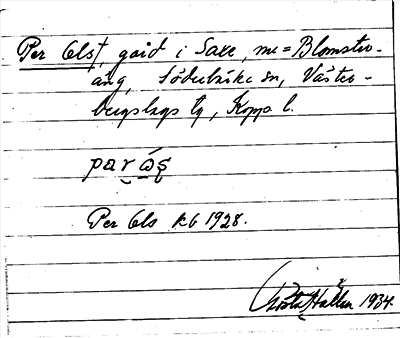 Per Ols†, gård i Saxe, m=Blomster-
äng, Söderbärke sn, Väster-
bergslags tg, Kopp. l.
Per Ols Kb 1928.
Gösta Hallén 1934.